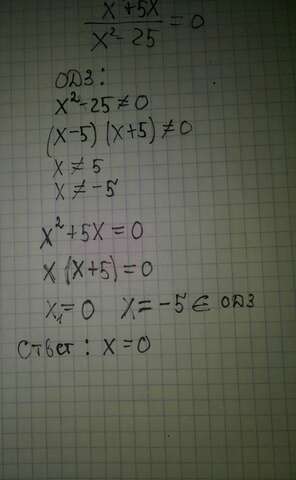 x²+5x
/
x²-25 = 0
ОДЗ:
x²-25≠0
(x-5)(x+5)≠0
x≠5
x≠-5
x²+5x=0
x(x+5)=0
x₁=0 x=-5 ∈ ОДЗ
Ответ: x=0